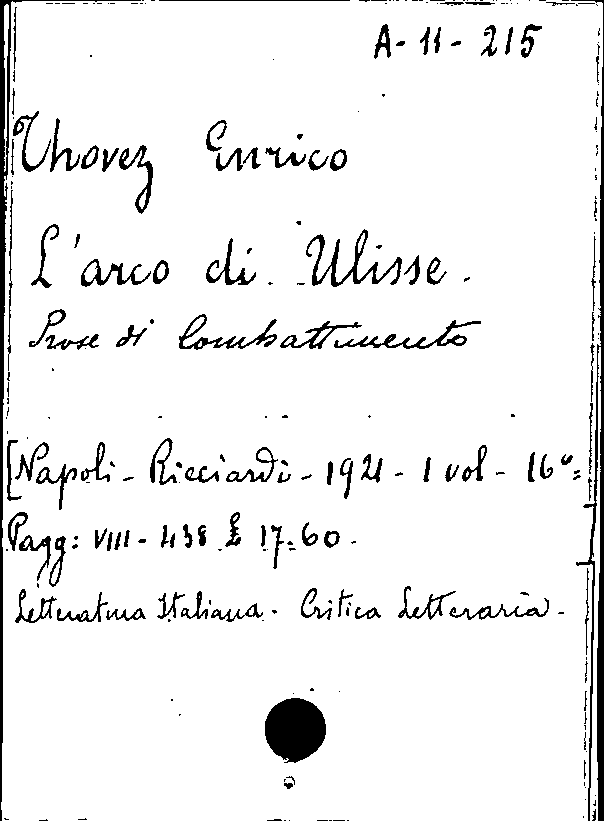 A-11-215
Thovez Enrico
L'arco di Ulisse.
Prose di Combattimento
[Napoli - Ricciardi - 1921 - 1 vol - 16° =
Pagg: VIII - 438 £ 17=60.
Letteratura Italiana - Critica Letteraria -